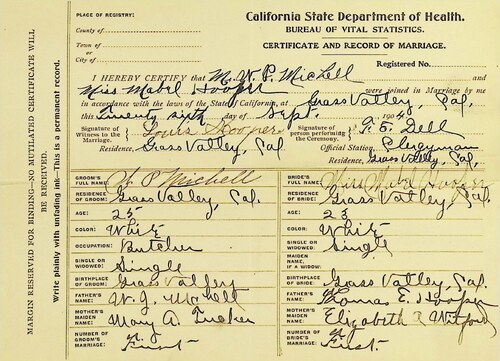 PLACE OF REGISTRY:
County of
Town of
or
City of
California State Department of Health.
BUREAU OF VITAL STATISTICS.
CERTIFICATE AND RECORD OF MARRIAGE.
Registered No.
I HEREBY CERTIFY that M. W. P. Michell and
Miss Mabel Hooper were joined in Marriage by me
in accordance with the laws of the State of California, at Grass Valley, Cal.
this Twenty sixth day of Sept. 1904
Signature of Witness to the Marriage. Louis Hooper
Residence, Grass Valley, Cal
Signature of person performing the Ceremony. Dell
Official Station, Clergyman
Residence, Grass Valley, Cal.
MARGIN RESERVED FOR BINDING—NO MUTILATED CERTIFICATE WILL BE RECEIVED.
Write plainly with unfading ink—This is a permanent record.
GROOM'S FULL NAME W P Michell
RESIDENCE OF GROOM: Grass Valley, Cal.
AGE: 25
COLOR: White
OCCUPATION: Butcher
SINGLE OR WIDOWED: Single
BIRTHPLACE OF GROOM: Grass Valley
FATHER'S NAME: W. J. Michell
MOTHER'S MAIDEN NAME: Mary A. Tucker
NUMBER OF GROOM'S MARRIAGE: First
BRIDE'S FULL NAME: Miss Mabel Hooper
RESIDENCE OF BRIDE: Grass Valley, Cal.
AGE: 23
COLOR: White
SINGLE OR WIDOWED: Single
MAIDEN NAME, IF A WIDOW:
BIRTHPLACE OF BRIDE: Grass Valley, Cal.
FATHER'S NAME: Thomas E. Hooper
MOTHER'S MAIDEN NAME: Elizabeth
NUMBER OF BRIDE'S MARRIAGE: First